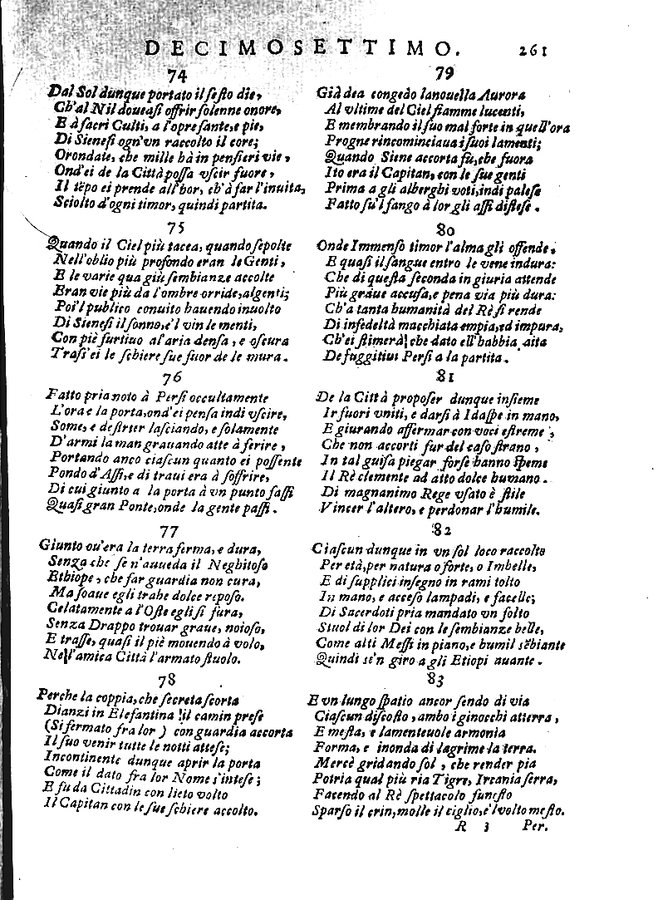 DECIMOSETTIMO. 261
74
Dal Sol dunque portato il sesto die,
Ch'al Nil doueasi offrir solenne onore,
E à sacri Culti, a l'opre sante, e pie,
Di Sienesi ogn'vn raccolto il core;
Orondate, che mille hà in pensieri vie,
Ond'ei de la Città possa vscir fuore,
Il tẽpo ei prende all'hor, ch'à far l'inuita,
Sciolto d'ogni timor, quindi partita.
75
Quando il Ciel più tacea, quando sepolte
Nell'oblio più profondo eran le Genti,
E le varie qua giù sembianze accolte
Eran vie più da l'ombre orride, algenti;
Poi'l publico conuito hauendo inuolto
Di Sienesi il sonno, e'l vin le menti,
Con piè furtiuo al'aria densa, e oscura
Trass'ei le schiere sue fuor de le mura.
76
Fatto pria noto à Persi occultamente
L'ora e la porta, ond'ei pensa indi vscire,
Some, e destrier lasciando, e solamente
D'armi la man grauando atte à ferire,
Portando anco ciascun quanto ei possente
Pondo d'Assi, e di traui era à soffrire,
Di cui giunto a la porta à vn punto fassi
Quasi gran Ponte, onde la gente passi.
77
Giunto ou'era la terra ferma, e dura,
Senza che se n'auueda il Neghitoso
Ethiope, che far guardia non cura,
Ma soaue egli trahe dolce riposo.
Celatamente a l'Oste egli si fura,
Senza Drappo trouar graue, noioso,
E trasse, quasi il piè mouendo à volo,
Nell'amica Città l'armato stuolo.
78
Perche la coppia, che secreta scorta
Dianzi in Elefantina il camin prese
(Si fermato fra lor) con guardia accorta
Il suo venir tutte le notti attese;
Incontinente dunque aprir la porta
Come il dato fra lor Nome s'intese;
E fu da Cittadin con lieto volto
Il Capitan con le sue schiere accolto.
79
Già dea congedo la nouella Aurora
Al vltime del Ciel fiamme lucenti,
E membrando il suo mal forte in quell'ora
Progne rincominciaua i suoi lamenti;
Quando Siene accorta fù, che fuora
Ito era il Capitan, con le sue genti
Prima a gli alberghi voti, indi palese
Fatto su'l fango à lor gli assi distese.
80
Onde Immenso timor l'alma gli offende,
E quasi il sangue entro le vene indura:
Che di questa seconda in giuria attende
Più graue accusa, e pena via più dura:
Ch'a tanta humanità del Rè si rende
Di infedeltà macchiata empia, ed impura,
Ch'ei stimerà, che dato ell'habbia aita
De fuggitiui Persi a la partita.
81
De la Città proposer dunque insieme
Ir fuori vniti, e darsi à Idaspe in mano,
E giurando affermar con voci estreme,
Che non accorti fur del caso strano,
In tal guisa piegar forse hanno speme
Il Rè clemente ad atto dolce humano.
Di magnanimo Rege vsato è stile
Vincer l'altero, e perdonar l'humile.
82
Ciascun dunque in vn sol loco raccolto
Per età, per natura o forte, o Imbelle,
E di supplici insegno in rami tolto
In mano, e acceso lampadi, e facelle;
Di Sacerdoti pria mandato vn folto
Stuol di lor Dei con le sembianze belle,
Come alti Messi in piano, e humil sẽbiante
Quindi se'n giro a gli Etiopi auante.
83
E vn lungo spatio ancor sendo di via
Ciascun discosto, ambo i ginocchi atterra,
E mesta, e lamenteuole armonia
Forma, e inonda di lagrime la terra.
Mercè gridando sol, che render pia
Potria qual più ria Tigre, Ircania serra,
Facendo al Rè spettacolo funesto
Sparso il crin, molle il ciglio, e'l volto mesto.
R 3 Per.